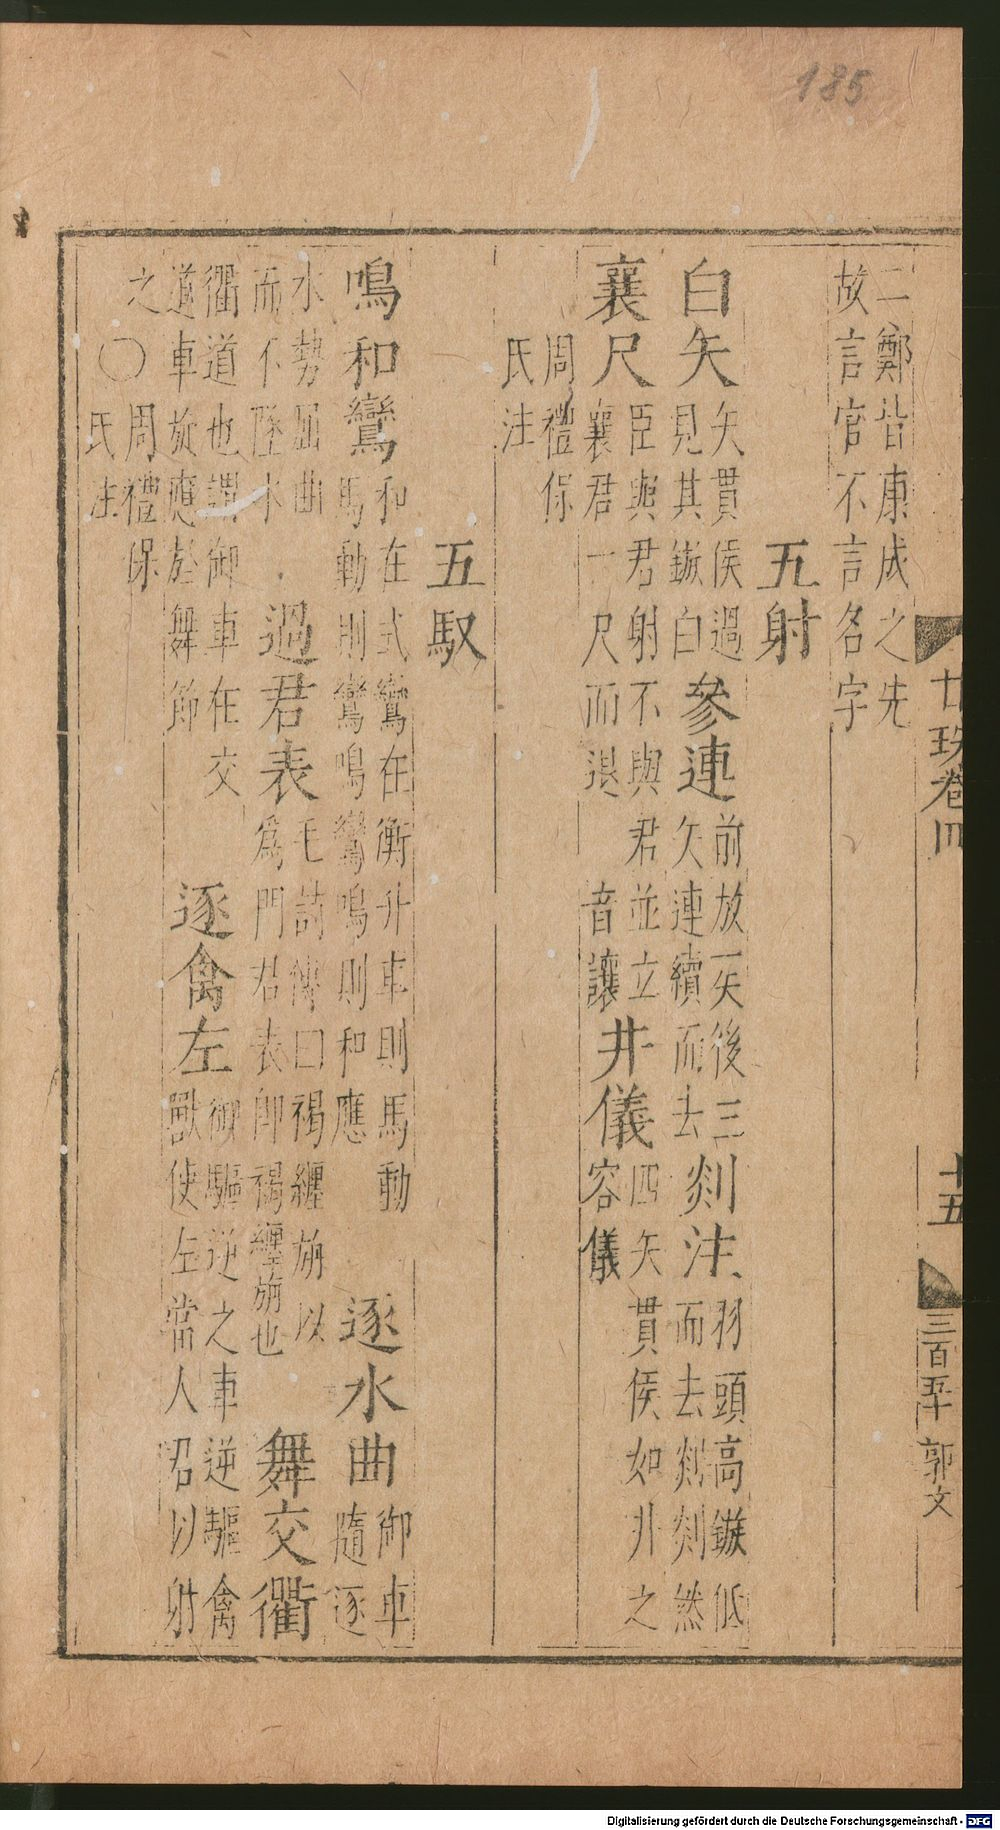 185
二鄭皆康成之先
故言官不言名字
五射
白矢 矢貫侯過
見其鏃白 參連 前放一矢後三
矢連續而去 剡注 羽頭高鏃低
而去剡剡然
襄尺 臣與君射不與君並立
襄君一尺而退 音讓 井儀 四矢貫侯如井之
容儀
周禮保
氏注
五馭
鳴和鸞 和在式鸞在衡升車則馬動
馬動則鸞鳴鸞鳴則和應 逐水曲 御車
隨逐
水勢屈曲
而不墜水 過君表 毛詩傳曰褐纏旃以
為門君表即褐纏旃也 舞交衢
衢道也謂御車在交
道車旋應於舞節 逐禽左 御驅逆之車逆驅禽
獸使左當人君以射
之〇周禮保
氏注
廿珠卷四
十五
三百五十
郭文
Digitalisierung gefördert durch die Deutsche Forschungsgemeinschaft - DFG